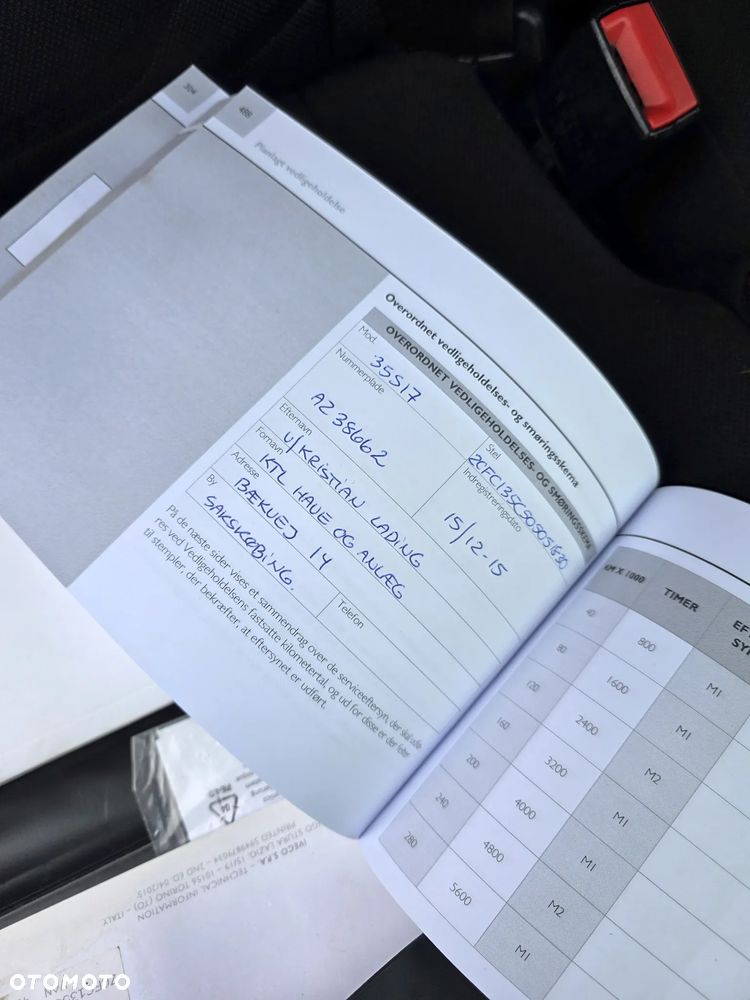 304
488
Planlagt vedligeholdelse
Overordnet vedligeholdelses- og smøringsskema
OVERORDNET VEDLIGEHOLDELSES- OG SMØRINGSSKEMA
Mod.
35S17
Stel
ZCFC135C505051830
Nummerplade
AZ 38662
Indregistreringsdato
15/12-15
Efternavn
V/KRISTIAN LADING
Fornavn
KTL HAVE OG ANLÆG
Adresse
BÆKVEJ 14
By
SAKSKØBING.
Telefon
På de næste sider vises et sammendrag over de serviceeftersyn, der skal udfø-
res ved Vedligeholdelsens fastsatte kilometertal, og ud for disse er der felter
til stempler, der bekræfter, at eftersynet er udført.
KM X 1000 TIMER
40 800 M1
80 1600 M1
120 2400 M2
160 3200 M1
200 4000 M1
240 4800 M2
280 5600 M1
IVECO S.P.A. - TECHNICAL INFORMATION
STURA LAZIO, 15/19 - 10156 TORINO (TO) - ITALY
2ND ED. 04/2015
OTOMOTO